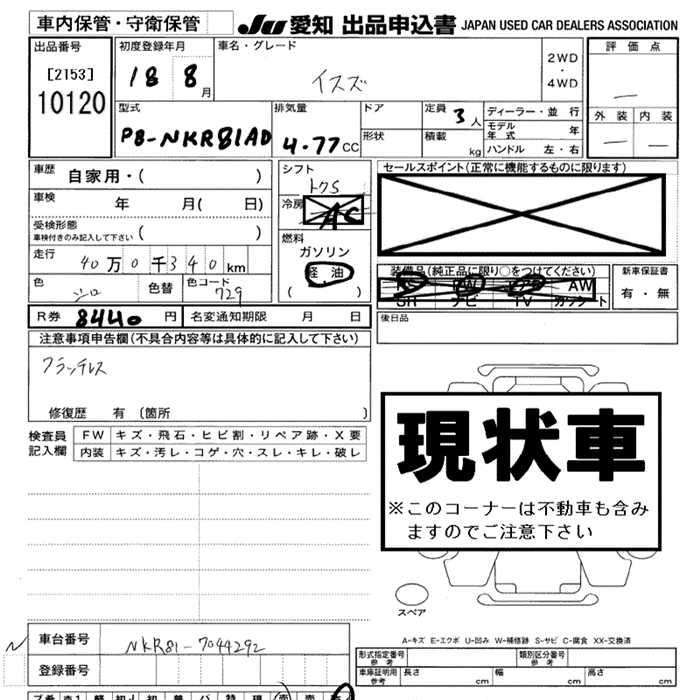 車内保管・守衛保管 JU 愛知 出品申込書 JAPAN USED CAR DEALERS ASSOCIATION
出品番号 初度登録年月 車名・グレード 2WD・4WD 評価点
[2153] 18 8月 イスズ
10120
外装 内装
型式 排気量 ドア 定員 3人 ディーラー・並行
PB-NKR81AD 4.77CC 形状 積載 kg モデル年式 年
ハンドル 左・右
車歴 自家用・( ) シフト セールスポイント(正常に機能するものに限ります)
車検 年 月( 日) 冷房 AC
受検形態 ( )
車検付きのみ記入して下さい
燃料
ガソリン
走行 40万0千340km 軽油
( )
装備品(純正品に限り○をつけてください) 新車保証書
PS PW AW
SH ナビ TV ガッシート
有・無
色 シロ 色替 色コード 729
R券 8440円 名変通知期限 月 日 後日品
注意事項申告欄(不具合内容等は具体的に記入して下さい)
クラッチレス
修復歴 有(箇所 )
現状車
※このコーナーは不動車も含みますのでご注意下さい
検査員記入欄 FW キズ・飛石・ヒビ割・リペア跡・X要
内装 キズ・汚レ・コゲ・穴・スレ・キレ・破レ
スペア
A-キズ E-エクボ U-凹み W-補修跡 S-サビ C-腐食 XX-交換済
車台番号 NKR81-7044292
登録番号
形式指定番号 参考 類別区分番号 参考
車庫証明用 参考 長さ cm 幅 cm 高さ cm